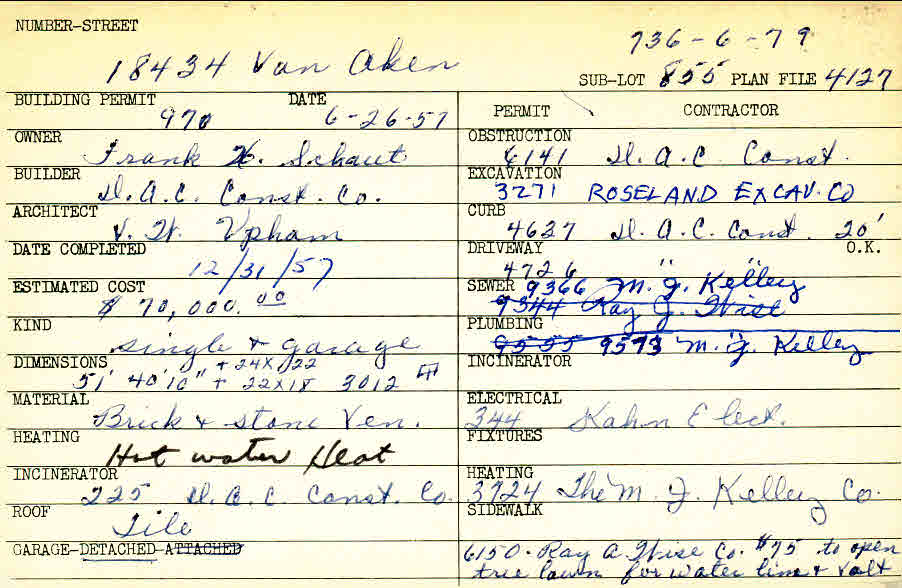 NUMBER-STREET
736-6-79
18434 Van Aken
SUB-LOT 855 PLAN FILE 4127
BUILDING PERMIT DATE
970 6-26-57
OWNER
Frank H. Schaut
BUILDER
D.A.C. Const. Co.
ARCHITECT
V. W. Upham
DATE COMPLETED
12/31/57
ESTIMATED COST
$ 70,000.00
KIND
single + garage
DIMENSIONS + 24X22
51' 40'10" + 22X18 3012
MATERIAL
Brick + stone Ven.
HEATING
Hot water Heat
INCINERATOR
225 D.A.C. Const. Co.
ROOF
Tile
GARAGE-DETACHED-ATTACHED
PERMIT CONTRACTOR
OBSTRUCTION
6141 D.A.C. Const.
EXCAVATION
3271 ROSELAND EXCAV. CO
CURB
4627 D.A.C. Const. 20'
DRIVEWAY O.K.
4726 " "
SEWER 9366 M. J. Kelley
9344 Ray J. Wise
PLUMBING
9555 9573 M. J. Kelley
INCINERATOR
ELECTRICAL
344 Kahn Elect.
FIXTURES
HEATING
3724 The M. J. Kelley Co.
SIDEWALK
6150 - Ray A. Wise Co. $75 to open
tree lawn for water line + Valt